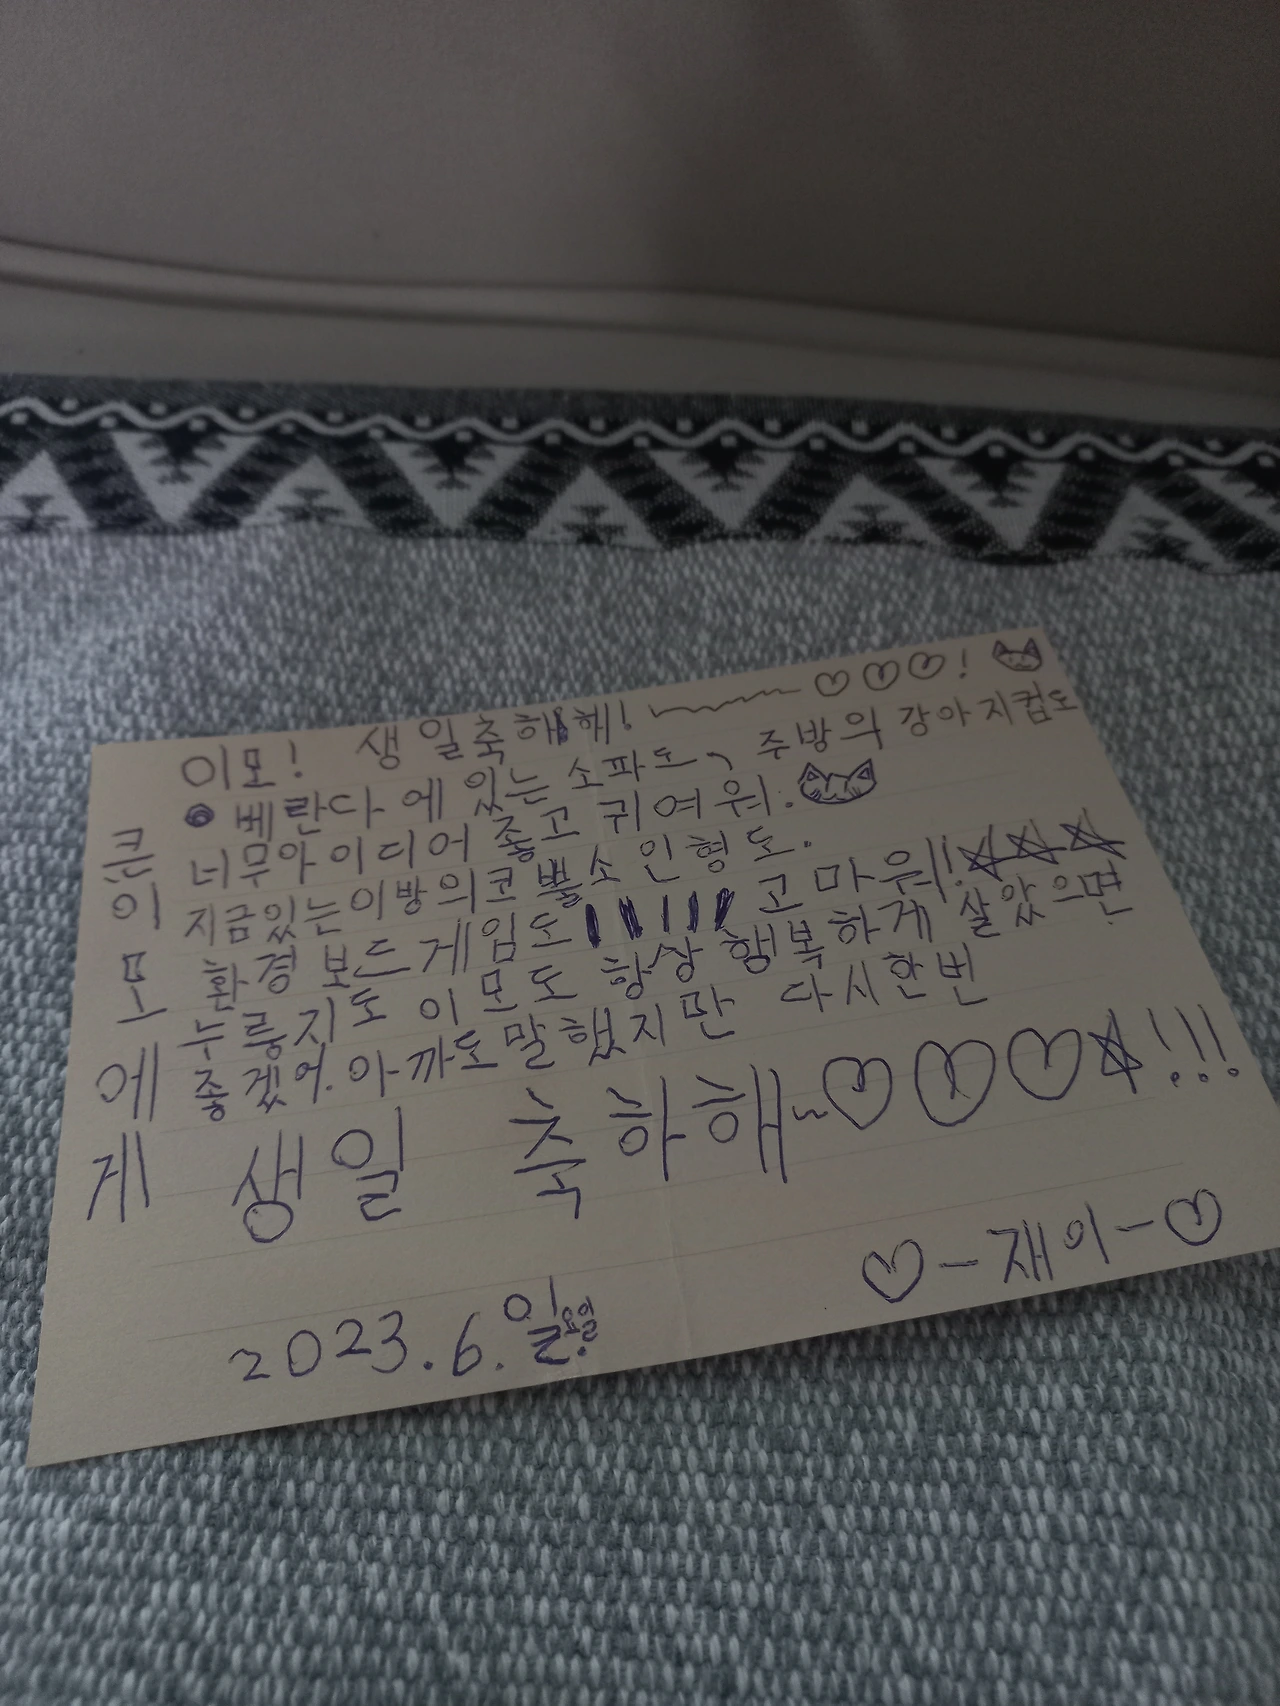 큰이모에게
이모! 생일축해해! ~ ♡♡♡!
베란다에 있는 소파도, 주방의 강아지컵도
너무아이디어 좋고 귀여워.
지금있는이방의코뿔소인형도.
환경 보드게임도 고마워! ☆☆☆
누룽지도 이모도 항상 행복하게 살았으면
좋겠어. 아까도말했지만 다시한번
생일 축하해~♡♡♡☆!!!
♡-재이-♡
2023.6.일요일.